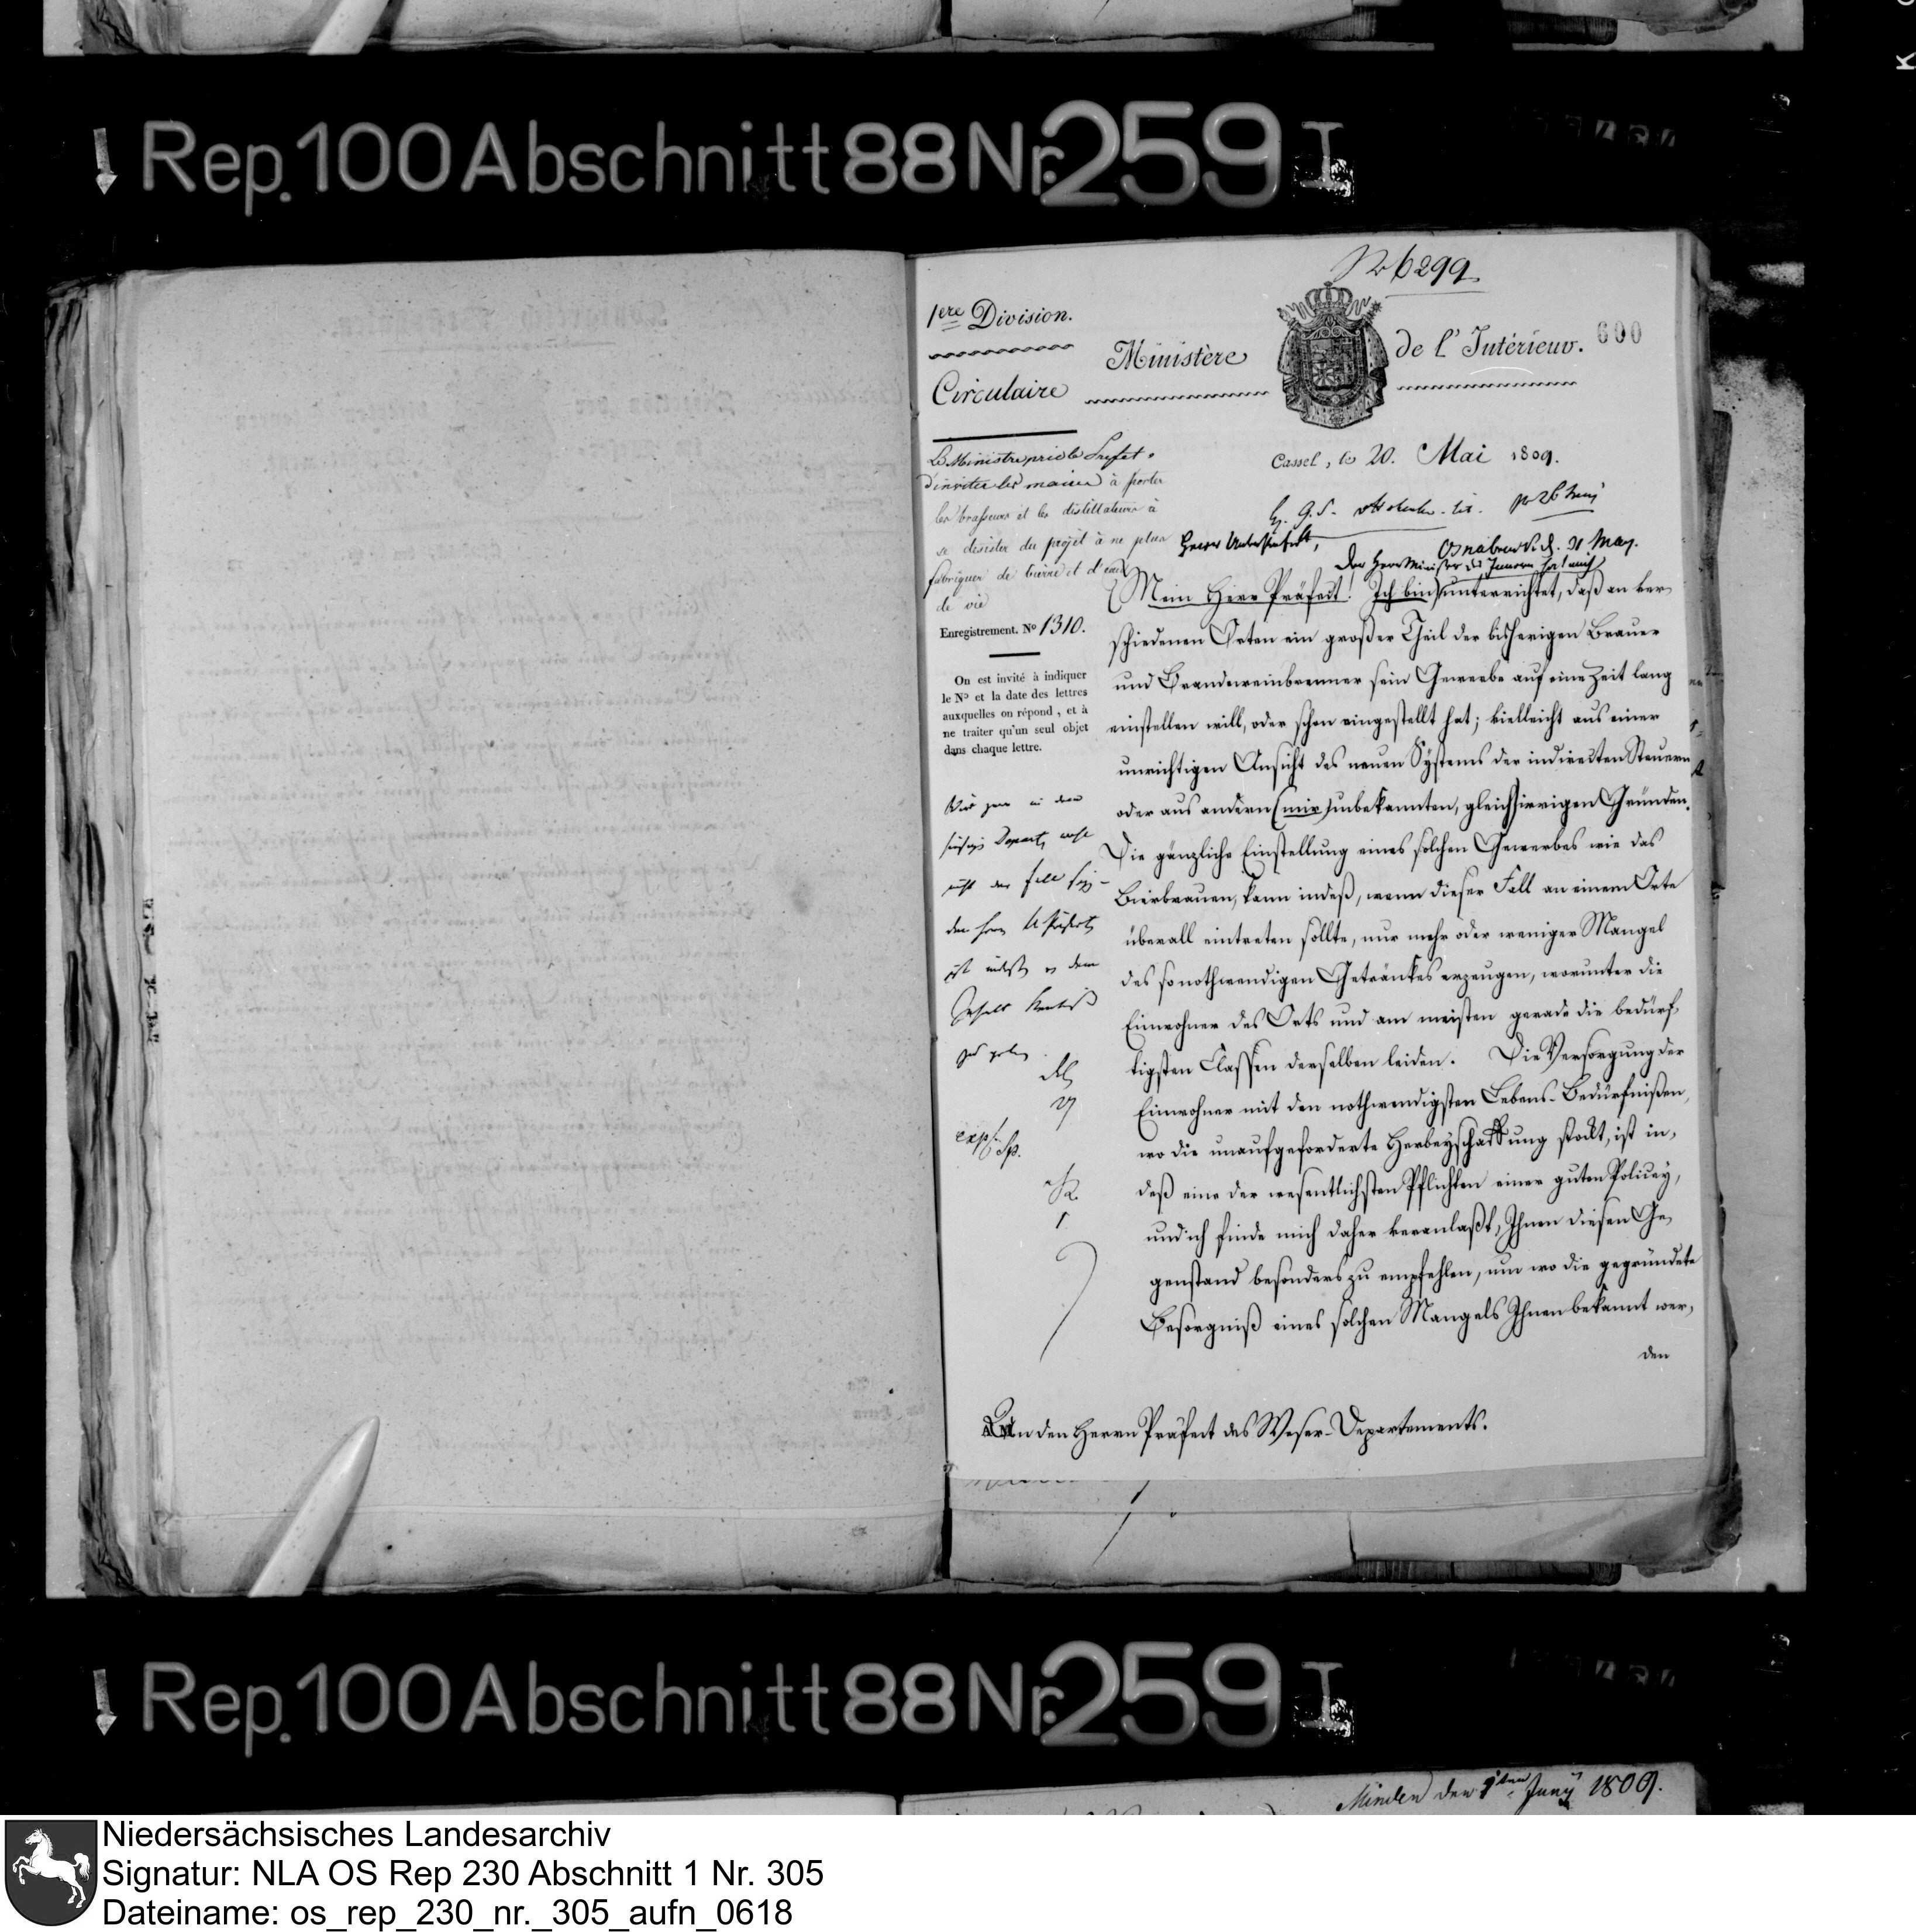 Rep. 100 Abschnitt 88 Nr. 259 I
No 6299.
1ere Division.
Ministère
de l'Intérieur.
600
Circulaire
Cassel, le 20. Mai 1809.
Le Ministre prie le Prefet
d'inviter les maires à porter
les brasseurs et les distillateurs à
se désister du projet à ne plus
fabriquer de bierre et d'eau
de vie
Enregistrement. No 1310.
On est invité à indiquer
le No et la date des lettres
auxquelles on répond, et à
ne traiter qu'un seul objet
dans chaque lettre.
Osnabrück d. 31 May.
Herrn Unterpräfect,
Der Herr Minister des Innern hat mich
(Mein Herr Präfect! Ich bin) unterrichtet, daß an ver-
schiedenen Orten ein großer Theil der bisherigen Brauer
und Brandeweinbrenner sein Gewerbe auf eine Zeit lang
einstellen will, oder schon eingestellt hat; vielleicht aus einer
unrichtigen Ansicht des neuen Systems der indirecten Steuern
oder aus andern (mir) unbekannten, gleich irrigen Gründen.
Die gänzliche Einstellung eines solchen Gewerbes wie das
Bierbrauen, kann indeß, wenn dieser Fall an einem Orte
überall eintreten sollte, nur mehr oder weniger Mangel
des so nothwendigen Getränkes erzeugen, worunter die
Einwohner des Orts und am meisten gerade die bedürf-
tigsten Classen derselben leiden. Die Versorgung der
Einwohner mit den nothwendigsten Lebens-Bedürfnißen,
wo die unaufgeforderte Herbeyschaffung stockt, ist in-
deß eine der wesentlichsten Pflichten einer guten Policey,
und ich finde mich daher veranlaßt, Ihnen diesen Ge-
genstand besonders zu empfehlen, um wo die gegründete
Besorgniß eines solchen Mangels Ihnen bekannt wer-
den
nicht der Fall
exp. Sp.
An den Herrn Präfect des Weser-Departements.
Rep. 100 Abschnitt 88 Nr. 259 I
Minden den 9ten Juny 1809.
Niedersächsisches Landesarchiv
Signatur: NLA OS Rep 230 Abschnitt 1 Nr. 305
Dateiname: os_rep_230_nr._305_aufn_0618